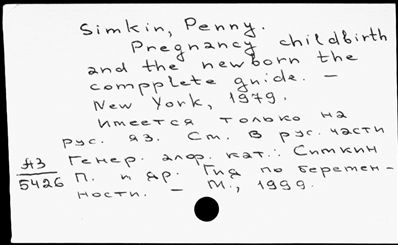 Simkin, Penny.
Pregnancy childbirth
and the newborn the
compplete guide. —
New York, 1979.
Имеется только на
рус. яз. См. в рус. части
Генер. алф. кат.: Симкин
П. и др. Гид по беремен-
ности. — М., 1999.
А3
5426